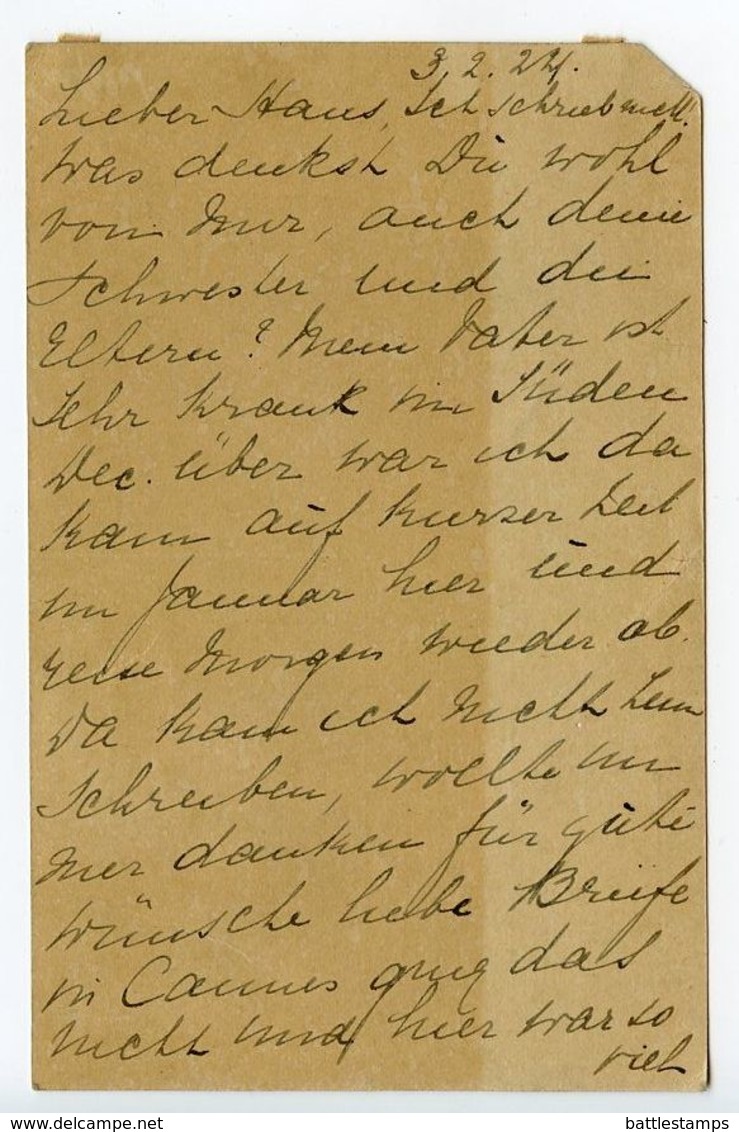 3.2.24.
Lieber Hans, Ich schrieb nicht.
Was denkst Du wohl
von mir, auch deine
Schwester und die
Eltern? Mein Vater ist
sehr krank im Süden
Dec. über war ich da
kam auf kurzer Zeit
im Januar hier und
reise Morgen wieder ab.
Da kam ich nicht zum
schreiben, wollte
danken für gute
wünsche liebe Briefe
in Cannes ging das
nicht und hier war so
viel
www.delcampe.net
battlestamps